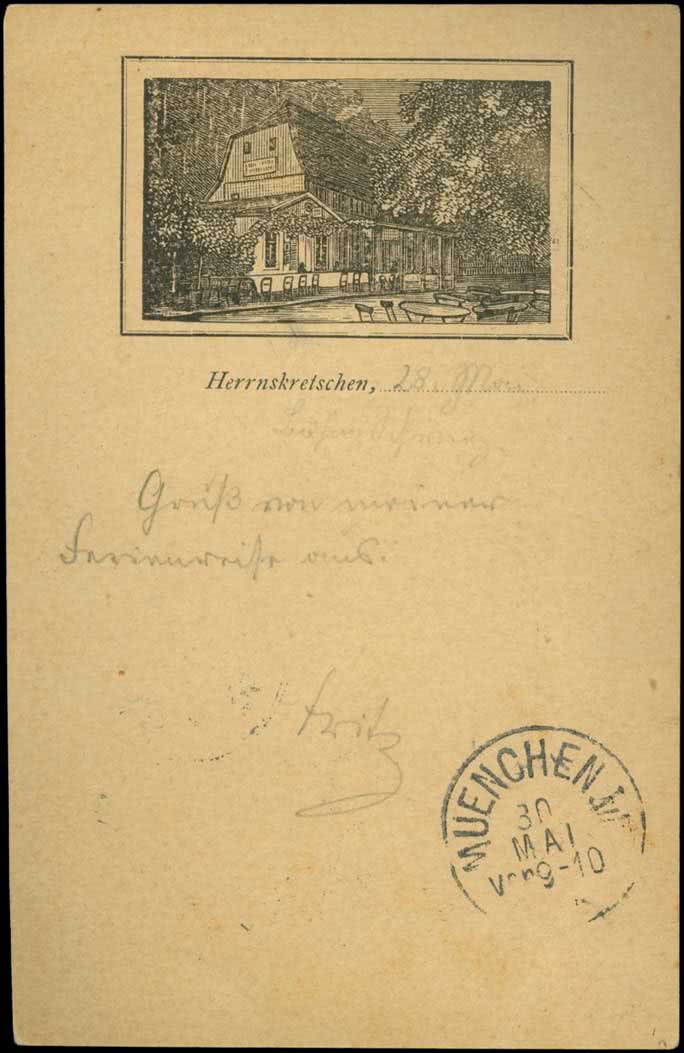 Herrnskretschen, 28. Mai
Böhm. Schweiz.
Gruß von meiner
Ferienreise aus.
Fritz
MUENCHEN
30
MAI
9-10